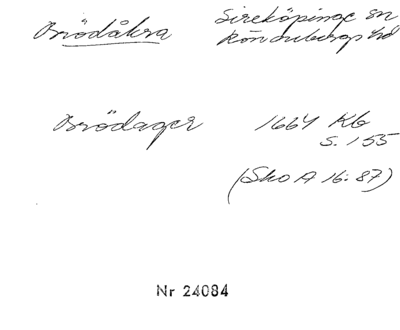 Brödåkra Sireköpinge sn
Rönnebergs hd
Brödager 1664 Kb
S. 155
(Sko A 16:87)
Nr 24084